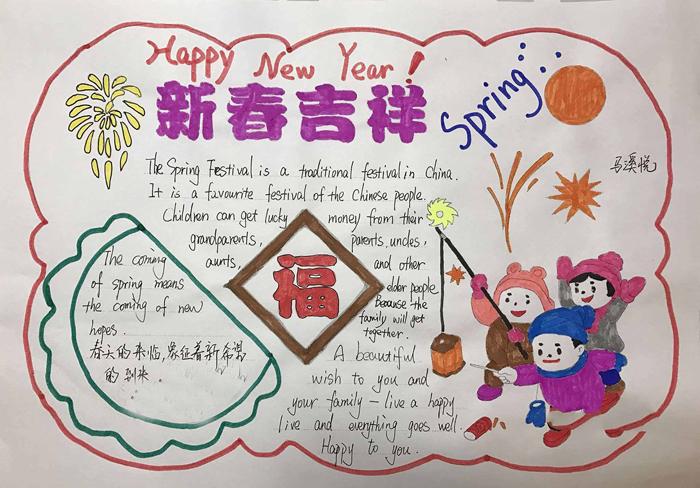 Happy New Year!
新春吉祥
Spring
马溪悦
The Spring Festival is a traditional festival in China.
It is a favourite festival of the Chinese people.
Children can get lucky money from their
grandparents, parents, uncles,
aunts, and other
elder people
Because the
family will get
together.
福
The coming
of spring means
the coming of new
hopes.
春天的来临,象征着新希望
的到来
A beautiful
wish to you and
your family – live a happy
live and everything goes well.
Happy to you.